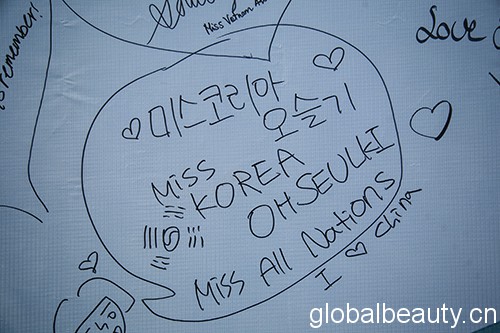 Miss Vietnam
remember!
Love
미스코리아
오슬기
Miss
KOREA
OHSEULKI
Miss All Nations
I ♡ China
globalbeauty.cn